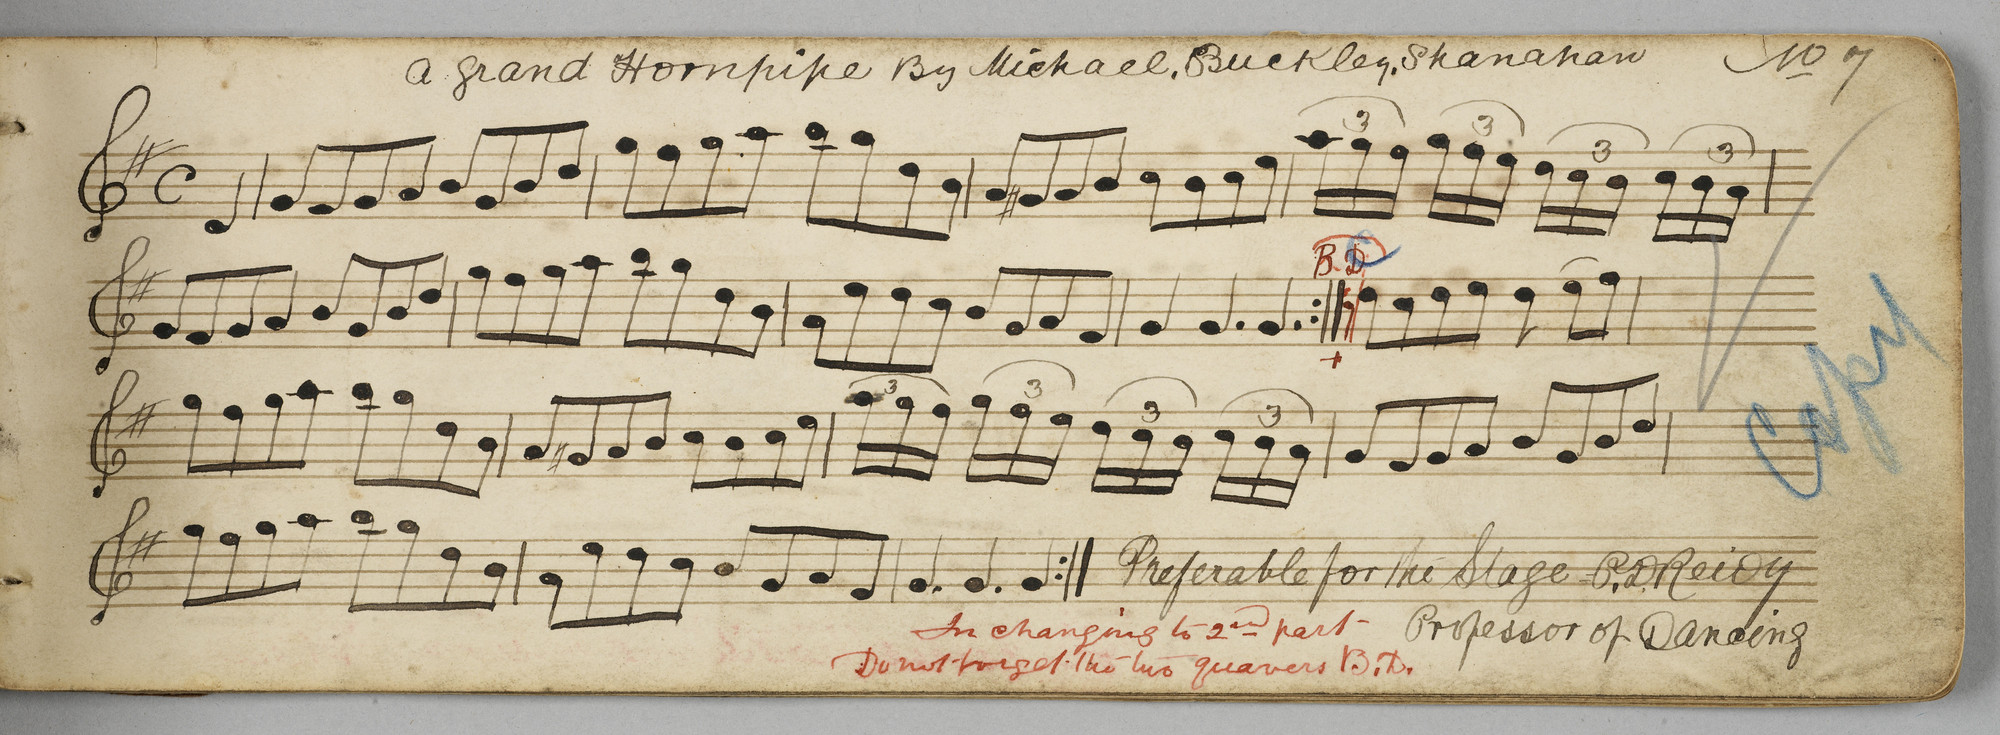 a grand Hornpipe By Michael. Buckley. Shanahan No 7
3 3 3 3
B. D
3 3 3 3
Copy
Preferable for the Stage P.D. Reidy
Professor of Dancing
In changing to 2nd part
Do not forget the two quavers B.D.